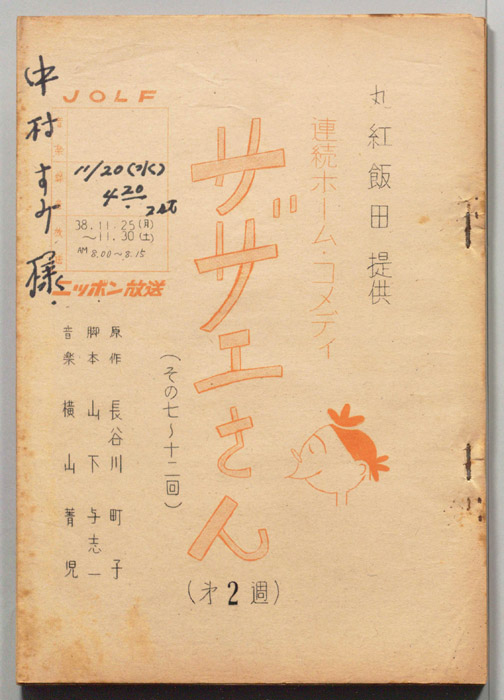 丸紅飯田 提供
連続ホーム・コメディ
サザエさん
(その七〜十二回)
(才2週)
原作 長谷川町子
脚本 山下与志一
音楽 横山菁児
JOLF
11/20(水)
4 20
38.11.25(月)
〜11.30(土)
AM 8.00〜8.15
ニッポン放送
中村すみ様